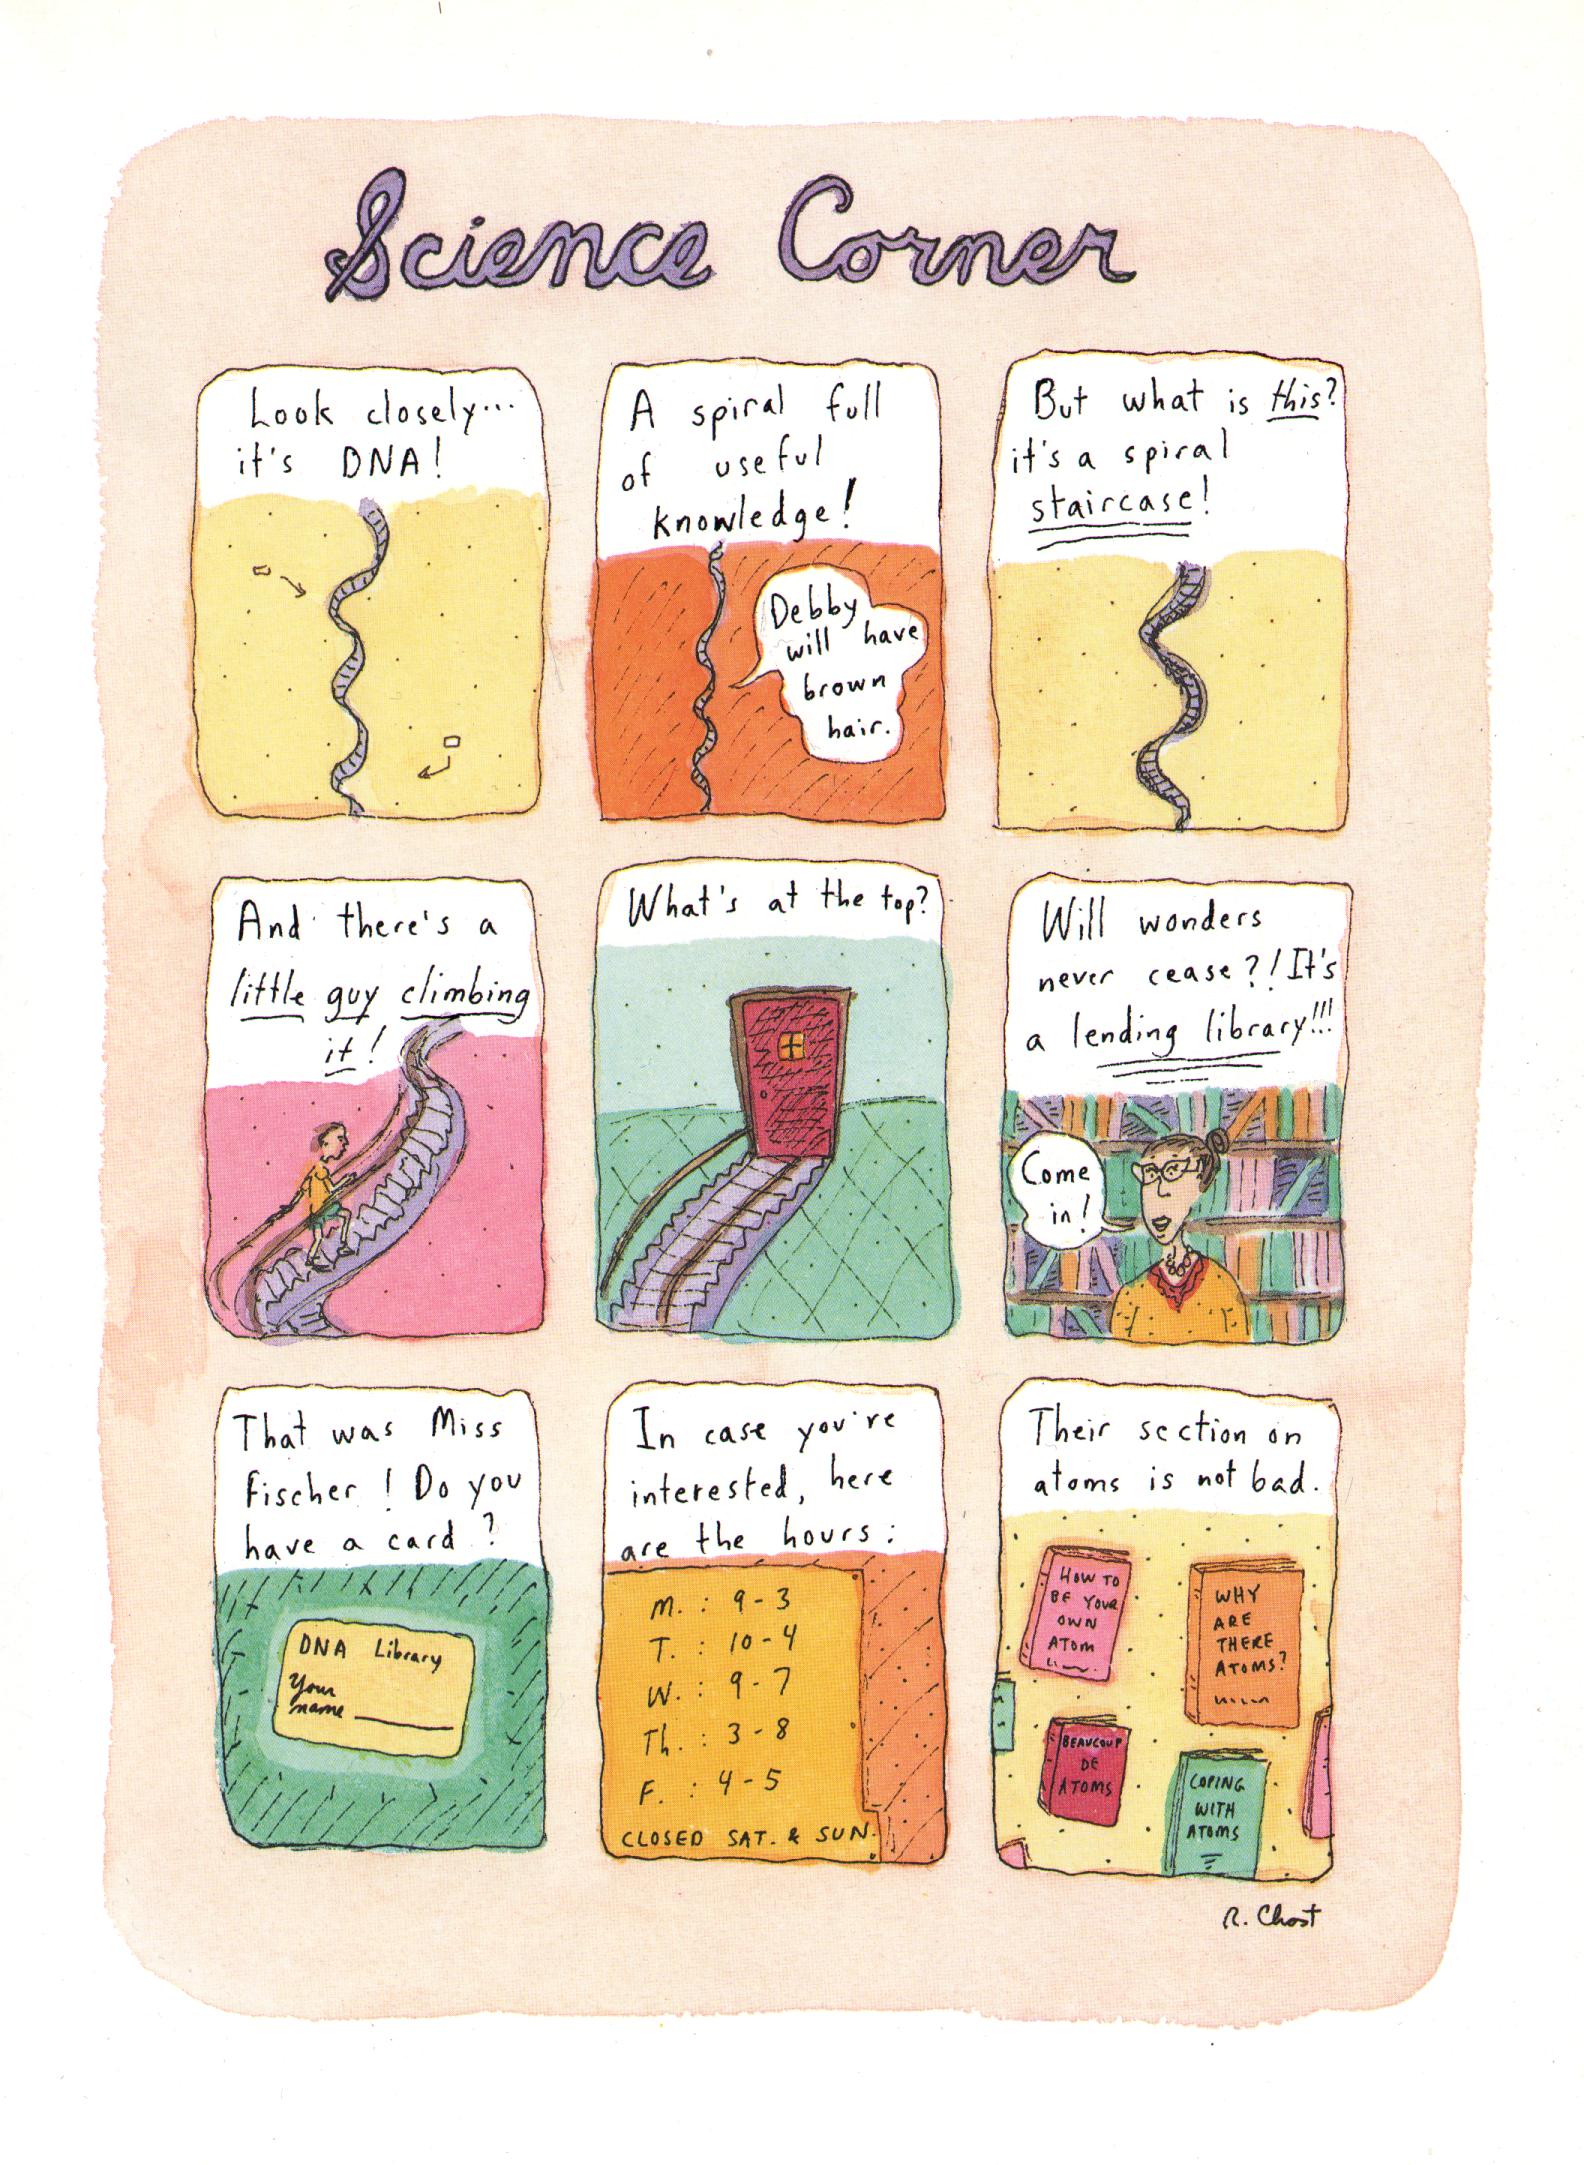 Science Corner
Look closely...
it's DNA!
A spiral full
of useful
knowledge!
Debby
will have
brown
hair.
But what is this?
it's a spiral
staircase!
And there's a
little guy climbing
it!
What's at the top?
Will wonders
never cease?! It's
a lending library!!!
Come
in!
That was Miss
Fischer! Do you
have a card?
DNA Library
Your
name
In case you're
interested, here
are the hours:
M. : 9-3
T. : 10-4
W. : 9-7
Th. : 3-8
F. : 4-5
CLOSED SAT. & SUN.
Their section on
atoms is not bad.
HOW TO
BE YOUR
OWN
ATOM
WHY
ARE
THERE
ATOMS?
BEAUCOUP
DE
ATOMS
COPING
WITH
ATOMS
R. Chast